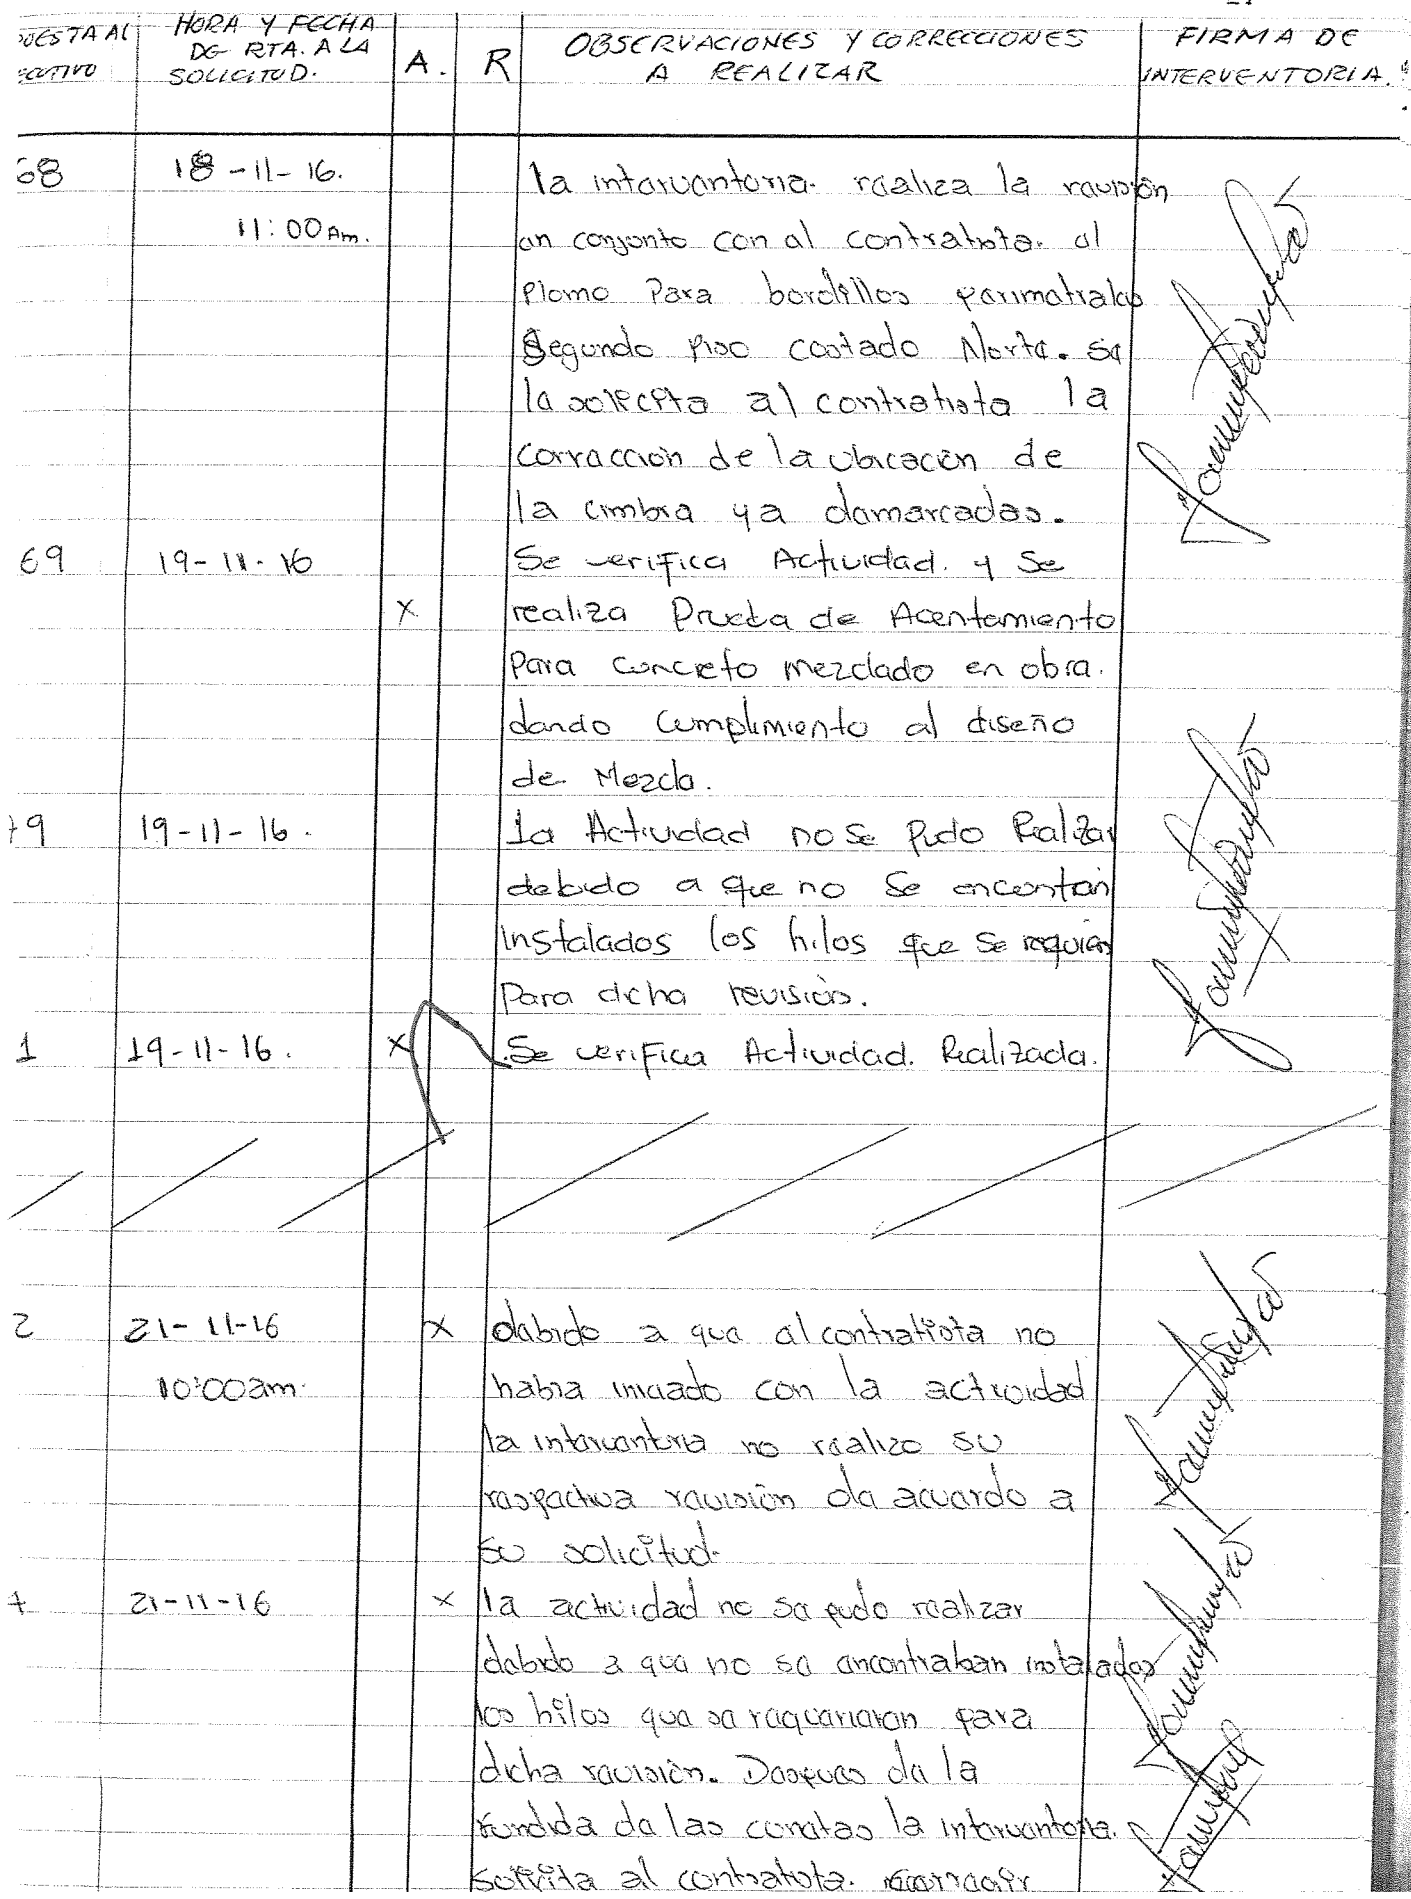 PUESTA AL HORA Y FECHA DE RTA. A LA SOLICITUD. A. R OBSERVACIONES Y CORRECCIONES A REALIZAR FIRMA DE INTERVENTORIA.
68 18-11-16. la interventoria. realiza la revisión
11:00 Am. en conjunto con el contratista. el
Plomo Para bordillos perimetrales
Segundo Piso costado Norte. se
la solicita al contratista la
corrección de la ubicación de
la cimbra ya demarcadas.
69 19-11-16 Se verifica Actividad. y Se
X realiza Prueba de Acentamiento
Para concreto mezclado en obra.
dando cumplimiento al diseño
de Mezcla.
79 19-11-16. La Actividad no se pudo Realizar
debido a que no Se encontran
Instalados los hilos que se requieren
Para dicha revisión.
1 19-11-16. X Se verifica Actividad. Realizada.
2 21-11-16 X debido a que el contratista no
10:00am. habia iniciado con la actividad
la interventoria no realizo su
respectiva revisión de acuerdo a
su solicitud.
21-11-16 X la actividad no se pudo realizar
debido a que no se encontraban instalados
los hilos que se requerieron para
dicha revisión. Despues de la
fundida de las la interventoria.
solicita al contratista.